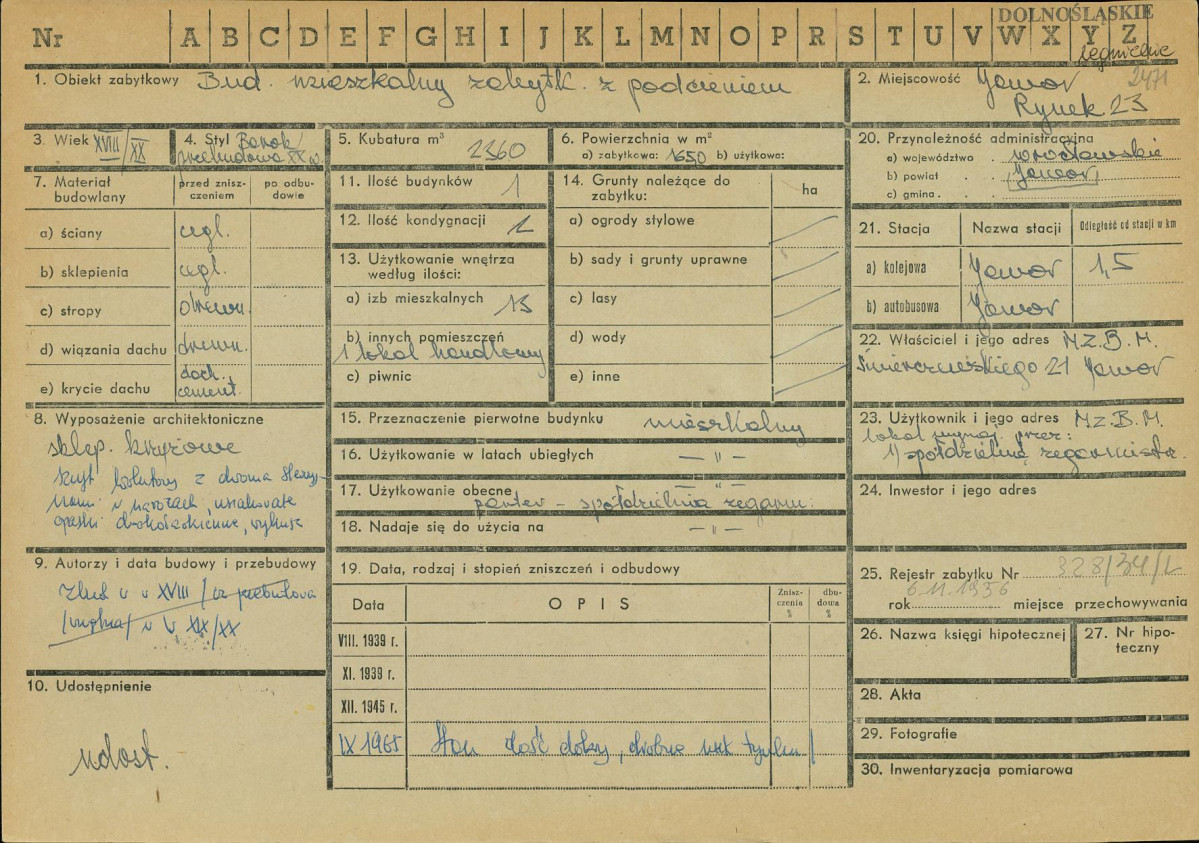 DOLNOŚLĄSKIE
Nr A B C D E F G H I J K L M N O P R S T U V W X Y Z
legnickie
1. Obiekt zabytkowy Bud. mieszkalny zabytk. z podcieniem
2. Miejscowość Jawor 2471
Rynek 23
3. Wiek XVIII/XX
4. Styl Barok/
przebudowa XX w.
5. Kubatura m³ 2360
6. Powierzchnia w m²
a) zabytkowa: 1650 b) użytkowa:
20. Przynależność administracyjna
a) województwo wrocławskie
b) powiat Jawor
c) gmina
7. Materiał budowlany
przed zniszczeniem
po odbudowie
a) ściany cegl.
b) sklepienia cegl.
c) stropy drewn.
d) wiązania dachu drewn.
e) krycie dachu dach. cement.
11. Ilość budynków 1
12. Ilość kondygnacji
13. Użytkowanie wnętrza
według ilości:
a) izb mieszkalnych 13
b) innych pomieszczeń
1 lokal handlowy
c) piwnic
14. Grunty należące do
zabytku:
ha
a) ogrody stylowe
b) sady i grunty uprawne
c) lasy
d) wody
e) inne
21. Stacja Nazwa stacji Odległość od stacji w km
a) kolejowa Jawor 1,5
b) autobusowa Jawor
22. Właściciel i jego adres M.Z.B.M.
Świerczewskiego 21 Jawor
8. Wyposażenie architektoniczne
sklep. krzyżowe
szczyt wolutowy z dwoma
w narożach
wykusz
15. Przeznaczenie pierwotne budynku mieszkalny
16. Użytkowanie w latach ubiegłych — " —
17. Użytkowanie obecne — " —
parter – spółdzielnia zegarm.
18. Nadaje się do użycia na — " —
23. Użytkownik i jego adres M.Z.B.M.
lokal wynaj. przez:
1) spółdzielnia zegarmistrz.
24. Inwestor i jego adres
9. Autorzy i data budowy i przebudowy
Zbud w w XVIII / przebudowa
w w XIX/XX
19. Data, rodzaj i stopień zniszczeń i odbudowy
Data OPIS Zniszczenia % dbudowa %
VIII. 1939 r.
XI. 1939 r.
XII. 1945 r.
IX 1965 Stan dość dobry, drobne tynku
25. Rejestr zabytku Nr 328/34/L
6.11.1956
rok miejsce przechowywania
26. Nazwa księgi hipotecznej
27. Nr hipoteczny
10. Udostępnienie
udost.
28. Akta
29. Fotografie
30. Inwentaryzacja pomiarowa